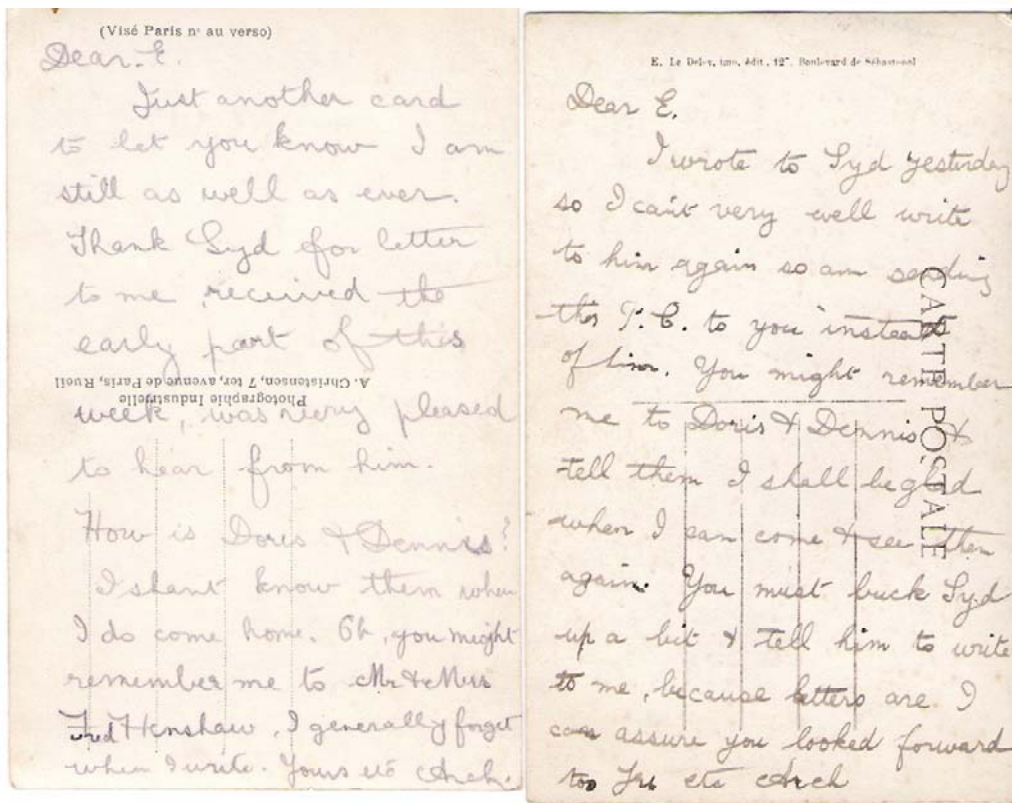 (Visé Paris nº au verso)
Dear E.
Just another card
to let you know I am
still as well as ever.
Thank Syd for letter
to me received the
early part of this
week, was very pleased
to hear from him.
How is Doris & Dennis?
I shant know them when
I do come home. Oh, you might
remember me to Mr & Mrs
Fred Henshaw, I generally forget
when I write. Yours etc Arch.
Photographie Industrielle
A. Christensen, 7 ter, avenue de Paris, Rueil
E. Le Deley, imp. édit., 127, Boulevard de Sébastopol
Dear E.
I wrote to Syd yesterday
so I can't very well write
to him again so am sending
this P.C. to you instead
of him. You might remember
me to Doris & Dennis &
tell them I shall be glad
when I can come & see them
again. You must buck Syd
up a bit & tell him to write
to me, because letters are I
can assure you looked forward
too Yrs etc Arch
CARTE POSTALE